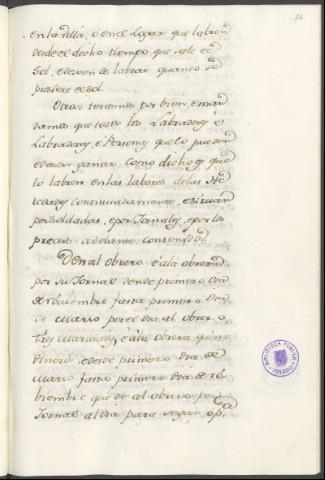 en la villa, ó en el Lugar que labren
desde el dicho tiempo que sale el
Sol, e dexen de labrar quando se
pusiere el sol.
Otrosi tenemos por bien, e man-
damos que todos los Labradores é
Labradoras, é Personas que lo puedan
e deven ganar como dicho es que
lo labren en las labores de las
continuadamente, e sirvan
por soldadas, e por Jornales, e por los
precios adelante contenidos.
Den al obrero e a la obrera
por su Jornal desde primero dia
de Noviembre fasta primero dia
de Marzo por el dia al obrero
tres maravedis, e a la obrera quin-
dineros e desde primero dia de
Marzo fasta primero dia de No-
biembre que de al obrero por
Jornal al dia para segun
BIBLIOTECA PUBLICA
TOLEDO